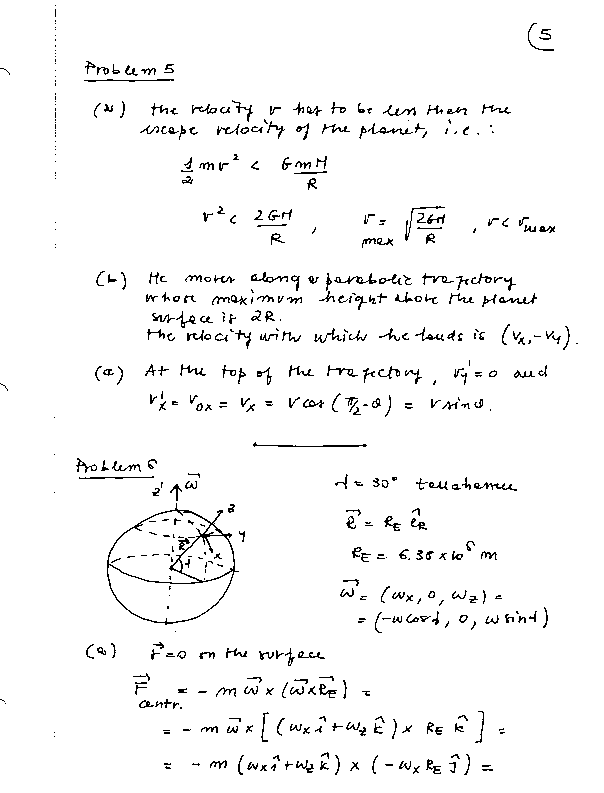 (5
Problem 5
(a) the velocity v has to be less than the
escape velocity of the planet, i.e.:
1/2 mv² < GmM/R
v² < 2GM/R , v max = √(2GM/R) , v < v max
(b) He moves along a parabolic trajectory
whose maximum height above the planet
surface is 2R.
the velocity with which he lands is (Vx, -Vy).
(c) At the top of the trajectory, Vy' = 0 and
Vx' = Vox = Vx = V cos (π/2 - θ) = V sinθ.
Problem 6
z' ω⃗
λ = 30° Tallahassee
z
y
x
R⃗
λ
R⃗ = R_E ê_R
R_E = 6.38 × 10⁶ m
ω⃗ = (ωx, 0, ωz) =
= (-ω cosλ, 0, ω sinλ)
(a) r⃗ = 0 on the surface
F⃗ centr. = - m ω⃗ × (ω⃗ × R⃗_E) =
= - m ω⃗ × [ (ωx î + ωz k̂) × R_E k̂ ] =
= - m (ωx î + ωz k̂) × (-ωx R_E ĵ) =